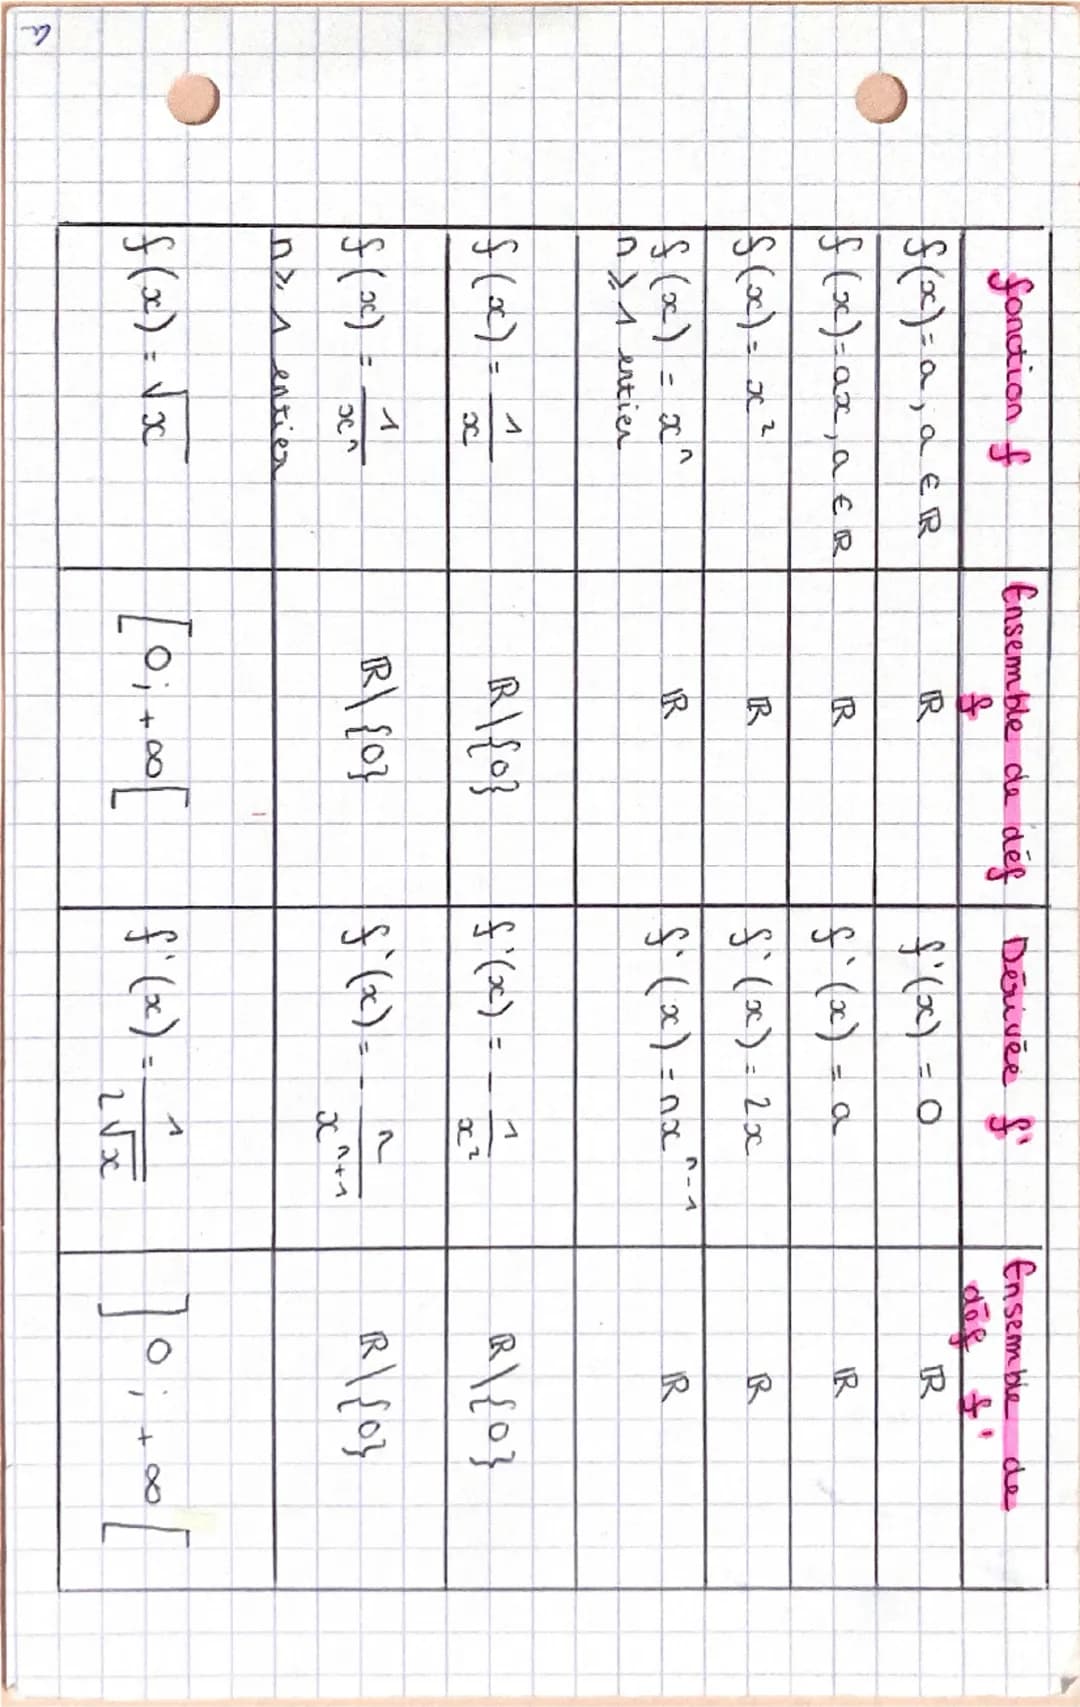 fonction f | Ensemble de déf f | Dérivée f' | Ensemble de déf f'
f(x) = a, a ∈ ℝ | ℝ | f'(x) = 0 | ℝ
f(x) = ax, a ∈ ℝ | ℝ | f'(x) = a | ℝ
f(x) = x² | ℝ | f'(x) = 2x | ℝ
f(x) = xⁿ n ⩾ 1 entier | ℝ | f'(x) = nxⁿ⁻¹ | ℝ
f(x) = 1/x | ℝ\{0} | f'(x) = - 1/x² | ℝ\{0}
f(x) = 1/xⁿ n ⩾ 1 entier | ℝ\{0} | f'(x) = - n/xⁿ⁺¹ | ℝ\{0}
f(x) = √x | [0; +∞[ | f'(x) = 1/2√x | ]0; +∞[